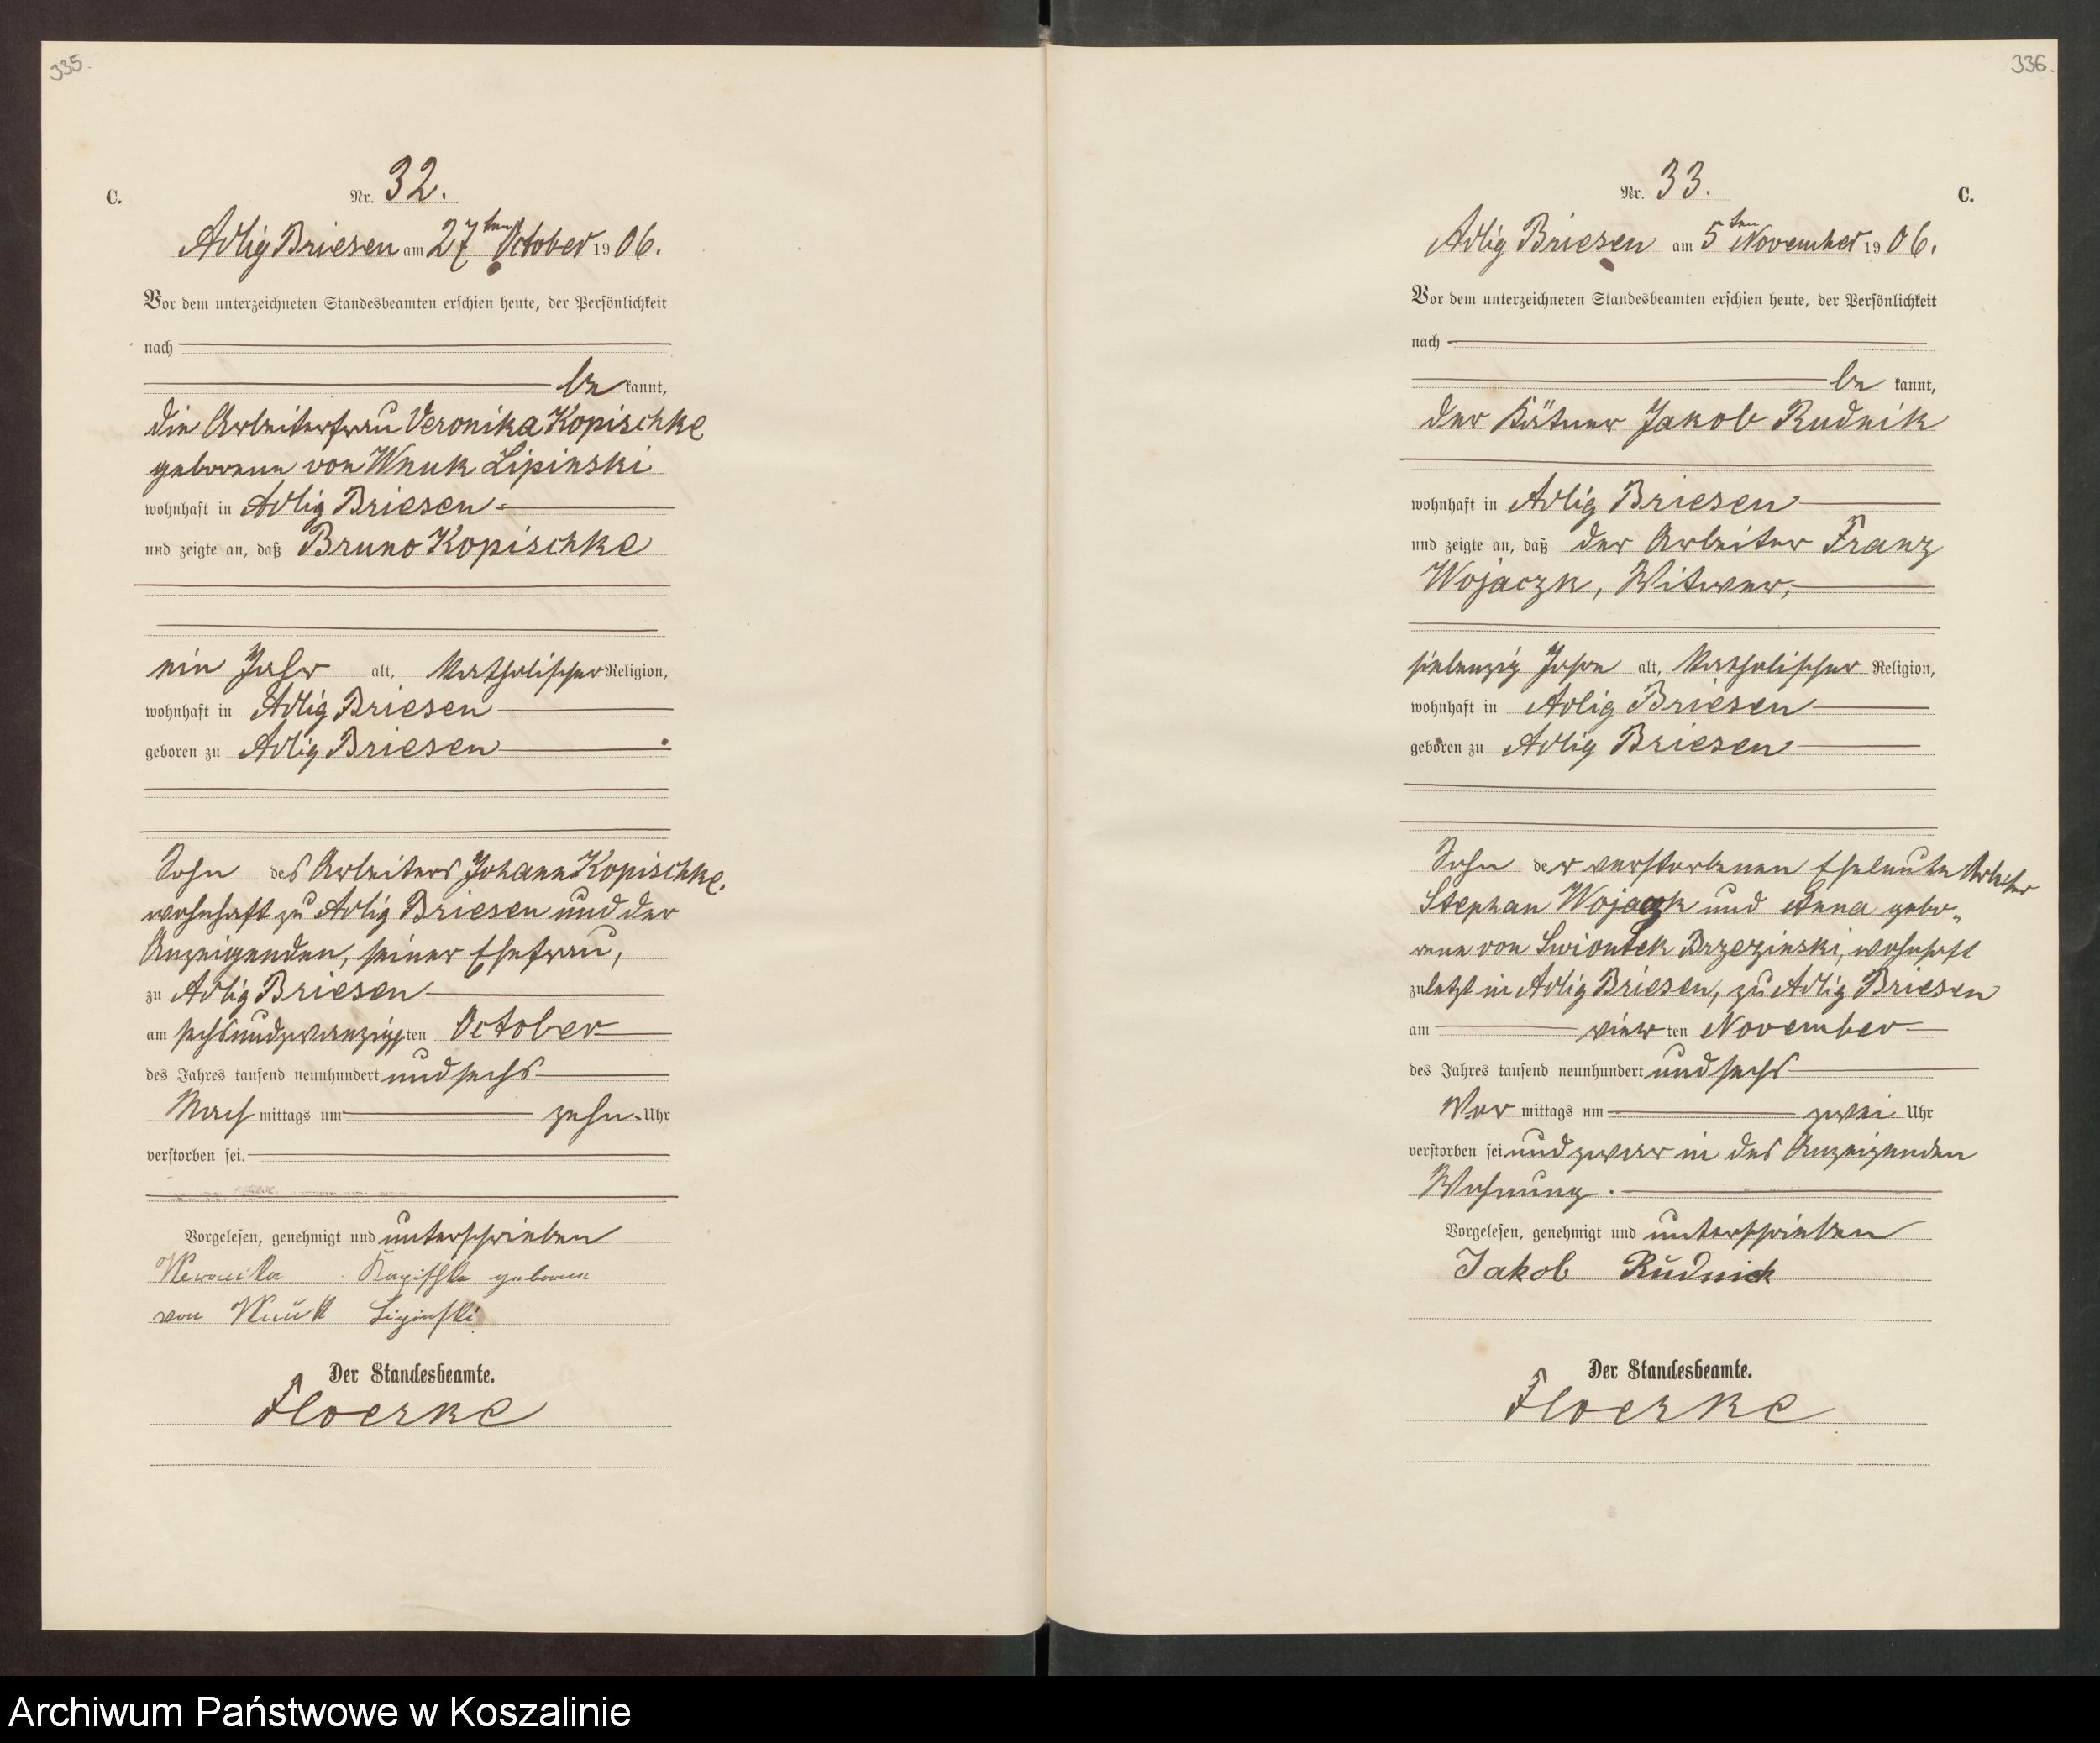 335.
C.
Nr. 32.
Adlig Briesen am 27ten October 1906.
Vor dem unterzeichneten Standesbeamten erschien heute, der Persönlichkeit
nach
be kannt,
die Arbeiterfrau Veronika Kopischke
geborene von Wnuk Lipinski
wohnhaft in Adlig Briesen
und zeigte an, daß Bruno Kopischke
ein Jahr alt, katholischer Religion,
wohnhaft in Adlig Briesen
geboren zu Adlig Briesen
Sohn des Arbeiters Johann Kopischke,
wohnhaft zu Adlig Briesen und der
Anzeigenden, seiner Ehefrau,
zu Adlig Briesen
am sechsundzwanzigsten October
des Jahres tausend neunhundert und sechs
Nach mittags um zehn Uhr
verstorben sei.
Vorgelesen, genehmigt und unterschrieben
Weronika Kopischke geborene
von Wnuk Lipinski
Der Standesbeamte.
Floerke
336.
Nr. 33.
C.
Adlig Briesen am 5ten November 1906.
Vor dem unterzeichneten Standesbeamten erschien heute, der Persönlichkeit
nach
be kannt,
der Kätner Jakob Rudnik
wohnhaft in Adlig Briesen
und zeigte an, daß der Arbeiter Franz
Wojaczk, Witwer,
siebenzig Jahre alt, katholischer Religion,
wohnhaft in Adlig Briesen
geboren zu Adlig Briesen
Sohn der verstorbenen Eheleute Arbeiter
Stephan Wojaczk und Anna gebo-
rene von Swiontek Brzezinski, wohnhaft
zuletzt in Adlig Briesen, zu Adlig Briesen
am vier ten November
des Jahres tausend neunhundert und sechs
Vor mittags um zwei Uhr
verstorben sei und zwar in des Anzeigenden
Wohnung.
Vorgelesen, genehmigt und unterschrieben
Jakob Rudnick
Der Standesbeamte.
Floerke
Archiwum Państwowe w Koszalinie